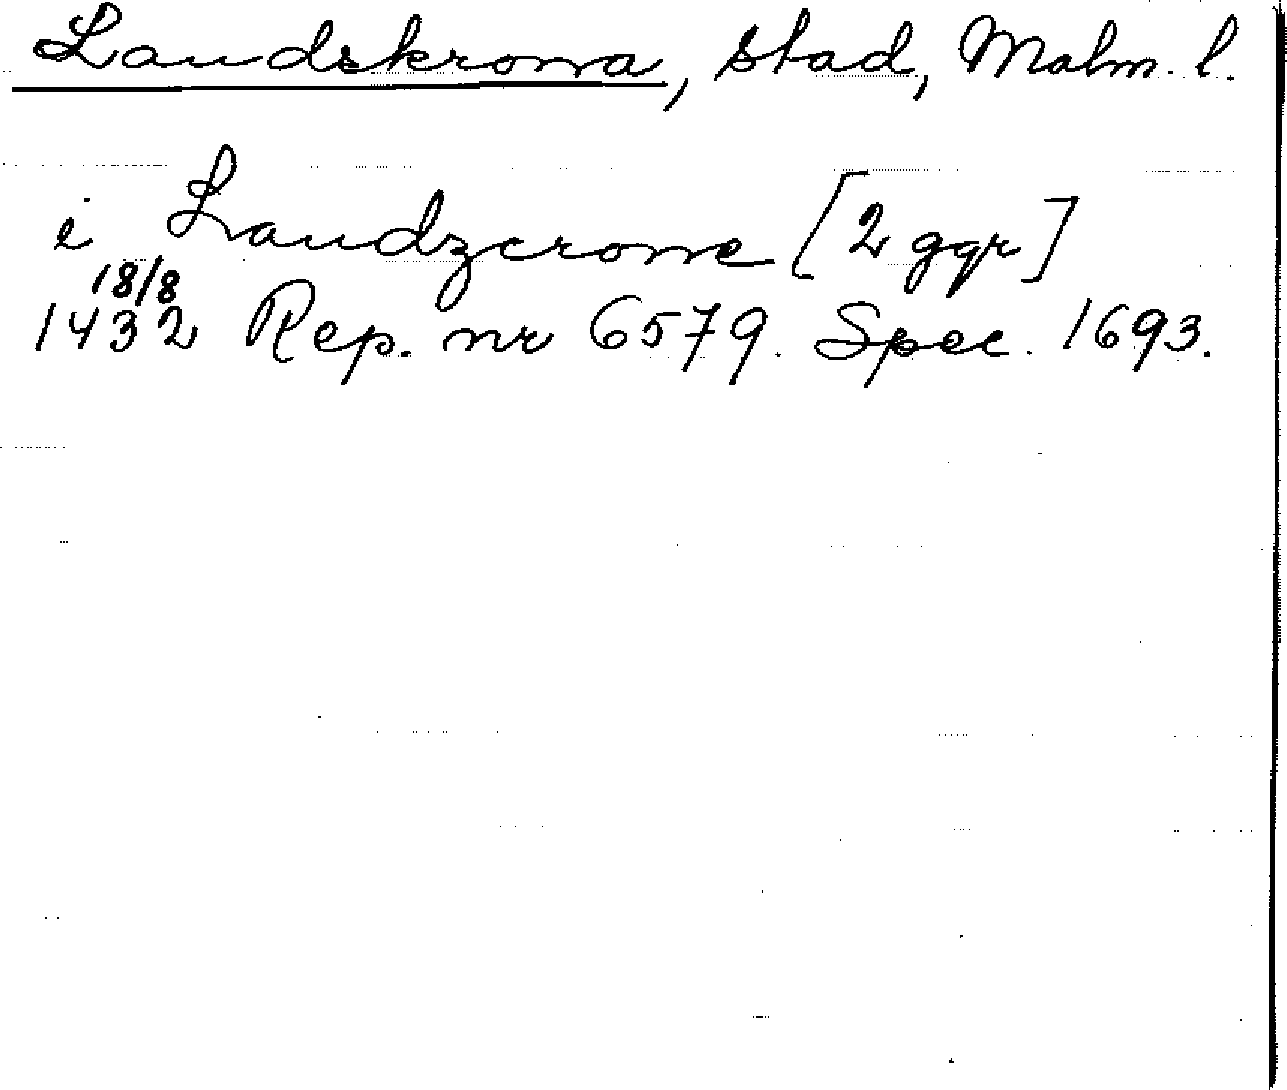 Landskrona, stad, Malm. l.
i Landzcrone [2 ggr]
18/8
1432 Rep. nr 6579. Spec. 1693.